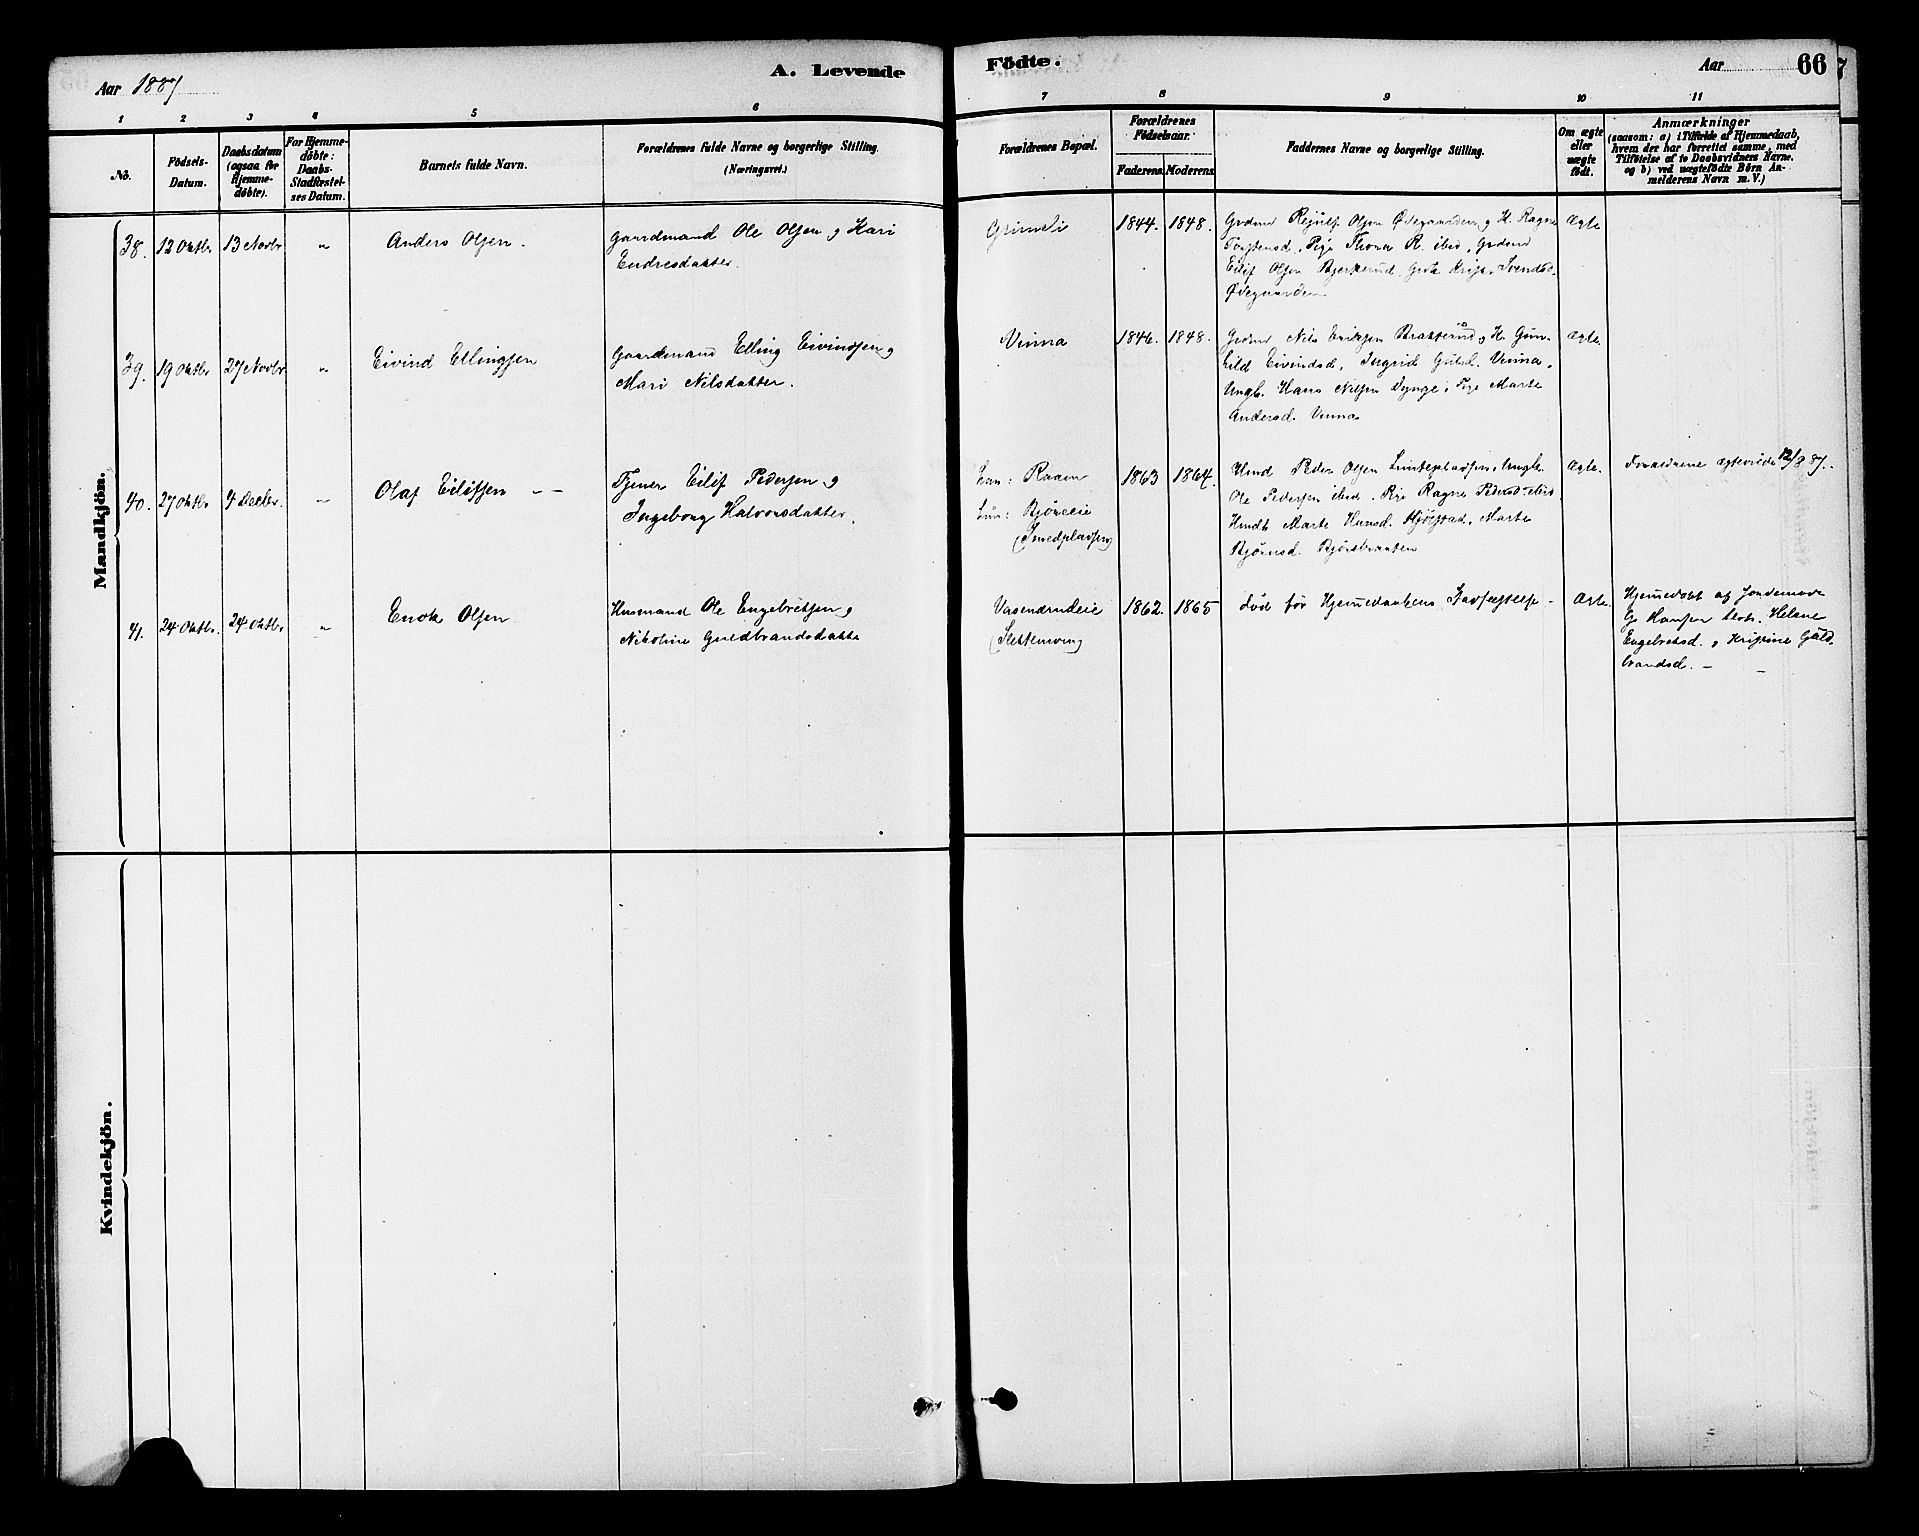 Aar 1887
A. Levende
Födte.
Aar
66
1 2 3 4 5 6 7 8 9 10 11
No.
Födsels-
Datum.
Daabsdatum
(ogsaa for
Hjemme-
døbte).
For Hjemme-
døbte:
Daabs-
Stadfæstel-
ses Datum.
Barnets fulde Navn.
Forældrenes fulde Navne og borgerlige Stilling.
(Næringsvei.)
Forældrenes Bopæl.
Forældrenes
Födselsaar.
Faderens. Moderens.
Faddernes Navne og borgerlige Stilling.
Om ægte
eller
uægte
født.
Anmærkninger
(saasom: a) i Tilfælde af Hjemmedaab,
hvem der har forrettet samme, med
Tilföielse af to Daabsvidners Navne.
og b) ved uægtefødte Börn An-
melderens Navn m. V.)
Mandkjön.
38. 12 Oktbr 13 Novbr " Anders Olsen.
Gaardmand Ole Olsen og Kari
Endresdatter.
Grimeli 1844. 1848.
Grdmd Rejulf Olsen Ødegaarden og K. Ragne
Torstensd, Pige Thona R. ibid, Grdmd
Eilif Olsen Bjerkerud, Svendsd.
Ødegaarden
Ægte
39. 19 Oktbr 27 Novbr " Eivind Ellingsen
Gaardmand Elling Eivindsen og
Mari Nilsdatter.
Vinna 1846. 1848.
Grdmd Nils Eriksen Brakkerud og K. Gun-
hild Eivindsd, Ingrid Gulsd. Vinna,
Ungk. Hans Nilsen Pige Marte
Andersd. Vinna
Ægte
40. 27 Oktbr 4 Decbr. " Olaf Eilifsen - -
Tjener Eilif Pedersen og
Ingeborg Halvorsdatter.
Han: Raaen
Hun: Bjøreeie
(Smedpladsen)
1863 1864.
Hmd Peder Olsen Ungk.
Ole Pedersen ibid, Pige Ragne Pedersd ibid
Marte Hansd. Marte
Bjørnsd. Bjørebraaten
Ægte. Forældrene ægteviede 12/8 87.
41. 24 Oktbr. 24 Oktbr " Enok Olsen
Husmand Ole Engebretsen og
Nikoline Guldbrandsdatter
Vasendrudeie
(Slettemoen)
1862. 1865
død før Hjemmedaabens Stadfæstelse -
Ægte
Hjemmedøbt af Jordemoder
G. Hansen Helene
Engebretsd. og Kristine Guld-
brandsd. - -
Kvindekjön.